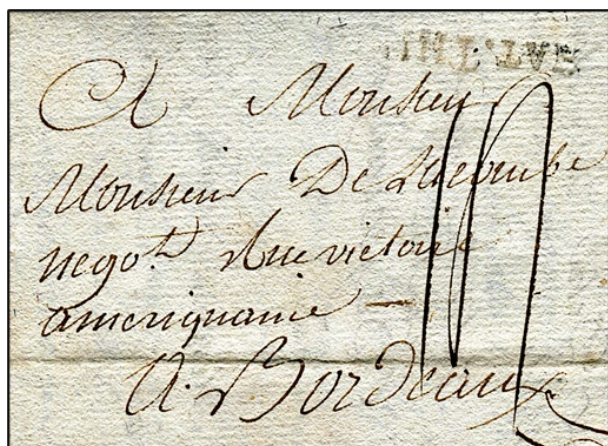 A Monsieur
Monsieur De Lacombe
negot. Rue victoire
ameriquaine
A Bordeaux